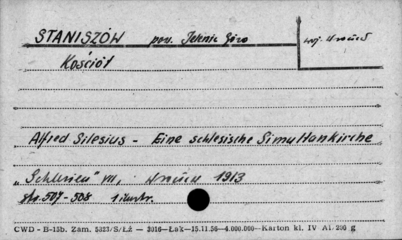 STANISZÓW pow. Jelenia Góra
woj. Wrocł
Kościół
Alfred Silesius - Eine schlesische Simultankirche
„Schlesien" VII, 1913
str. 507-508 1 ilustr.
CWD - B-15b. Zam. 5323/S/Łż - 2016-Łak-15.11.56-4.000.000-Karton kl. IV A1. 200 g